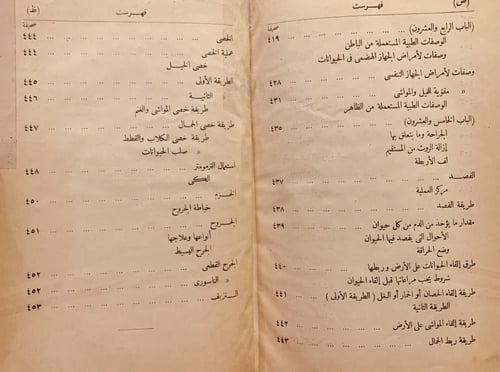 (ض)
فهرست
صحيفة
(الباب الرابع والعشرون)
الوصفات الطبية المستعملة من الباطن ٤١٩
وصفات لأمراض الجهاز الهضمى فى الحيوانات
وصفات لأمراض الجهاز التنفسى ٤٢٨
» مقوّية للخيل والمواشى ٤٣١
الوصفات الطبية المستعملة من الظاهر
(الباب الخامس والعشرون) ٤٣٥
الجراحة وما يتعلق بها
إزالة الروث من المستقيم
لف الأربطة
الفصد ٤٣٧
مركز العملية
طريقة الفصد ٤٣٨
مقدار ما يؤخذ من الدم من كل حيوان ٤٣٩
الأحوال التى يفصد فيها الحيوان
وضع الحراقة
طرق إلقاء الحيوانات على الأرض وربطها ٤٤٠
شروط يجب مراعاتها قبل إلقاء الحيوان
طريقة إلقاء الحصان أو الحمار أو البغل (الطريقة الأولى) ٤٤١
الطريقة الثانية
طريقة إلقاء المواشى على الأرض ٤٤٢
طريقة ربط الجمال ٤٤٣
فهرست
(ظ)
صحيفة
الخصى ٤٤٤
عملية الخصى ٤٤٤
خصى الخيل
الطريقة الأولى ٤٤٥
» الثانية ٤٤٦
طريقة خصى المواشى والغنم
طريقة خصى الجمال ٤٤٧
طريقة خصى الكلاب والقطط
» صلب الحيوانات
استعمال الترمومتر ٤٤٨
الكى
الخزم ٤٥٠
خياطة الجروح
الجروح ٤٥١
أنواعها وعلاجها
الجرح البسيط
الجرح القطعى ٤٥٢
» الناسورى ٤٥٢
النزيف ٤٥٣